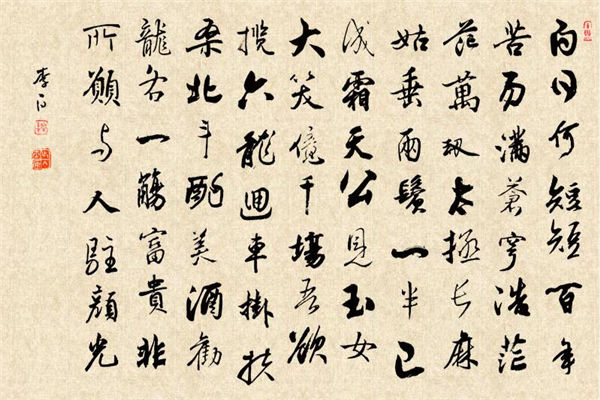 白日何短短百年
苦易滿蒼穹浩茫
茫萬劫太極長麻
姑垂兩鬢一半已
成霜天公見玉女
大笑億千場吾欲
攬六龍迴車掛扶
桑北斗酌美酒勸
龍各一觴富貴非
所願与人駐顏光
李白